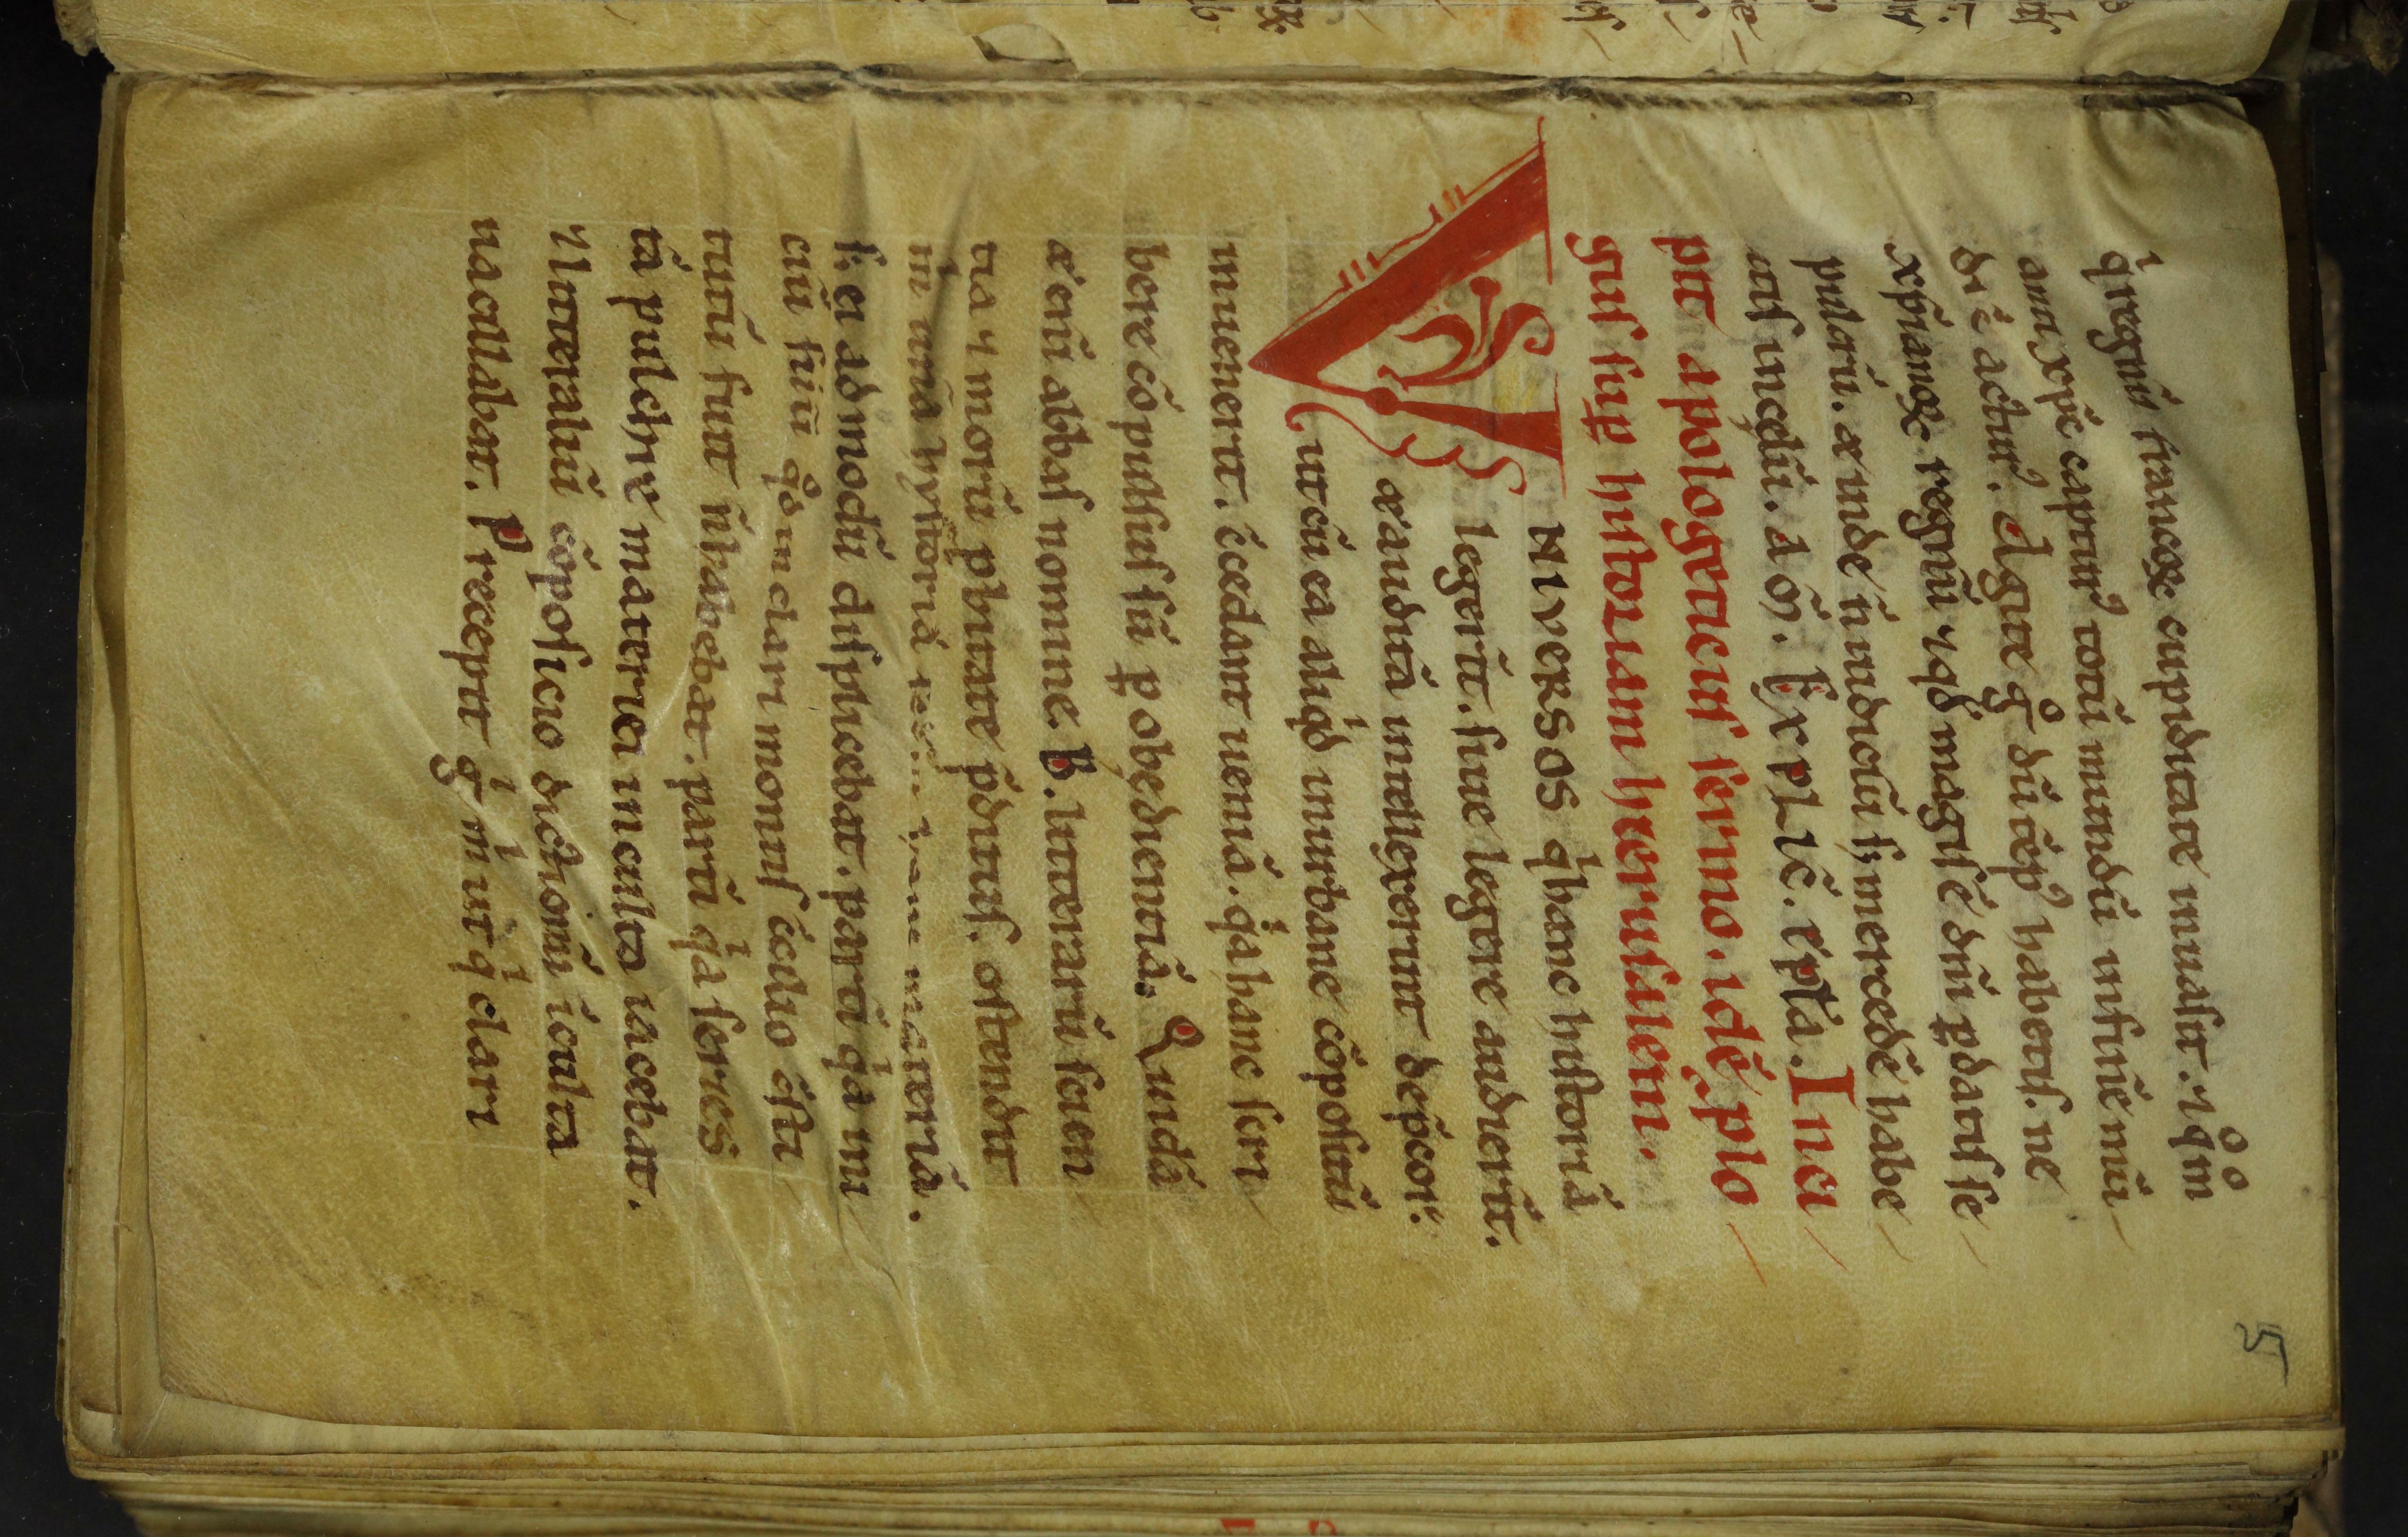 qͥ regnū francoꝝ cupiditate inuasit. ⁊ qͦm̊
ama xp̄c captur᾽ totū mundū insinē nū
di ē actur᾽. Agite gͦ dū tēp᾽ habetis. ne
xp̄ianoꝝ regnū ⁊ qđ magisē dn̄i ꝑdatis se
pulcrū. & unde n̄ iudiciū sꝫ mercedē habe
atis incęlū. am̄. Explic̄. epl̄a. Inci
pit apologeticus sermo. idē ꝓlo
gus suꝑ historiam hierusalem.
UNIVERSOS qͥ hanc historiā
legerīt. siue legere audierīt.
& auditā intellexerint dep̄cor᾽.
ut cū ea aliqͥd inurbane cōpositū
inuenerit. ēcedant ueniā. qͥa hanc scri
bere cōpulsus sū ꝑ obędientiā. Quidā
& eni abbas nomine. B. litterarū scien
tia ⁊ morū ꝓbitate p̄ditus. ostendit
m̄ unā hystoriā materiā.
sꝫ ei admodū displicebat. partī qͥa ini
ciū suū qͦd in clari montis cc̄ilio ēsti
tutū fuit n̄ habebat. partī qͥa series
tā pulchre materiei inculta iacebat.
⁊ litteraliū cōposicio dictionū īculta
uacillabat. Precepit gͥ mͥ ut qͥ clari
5